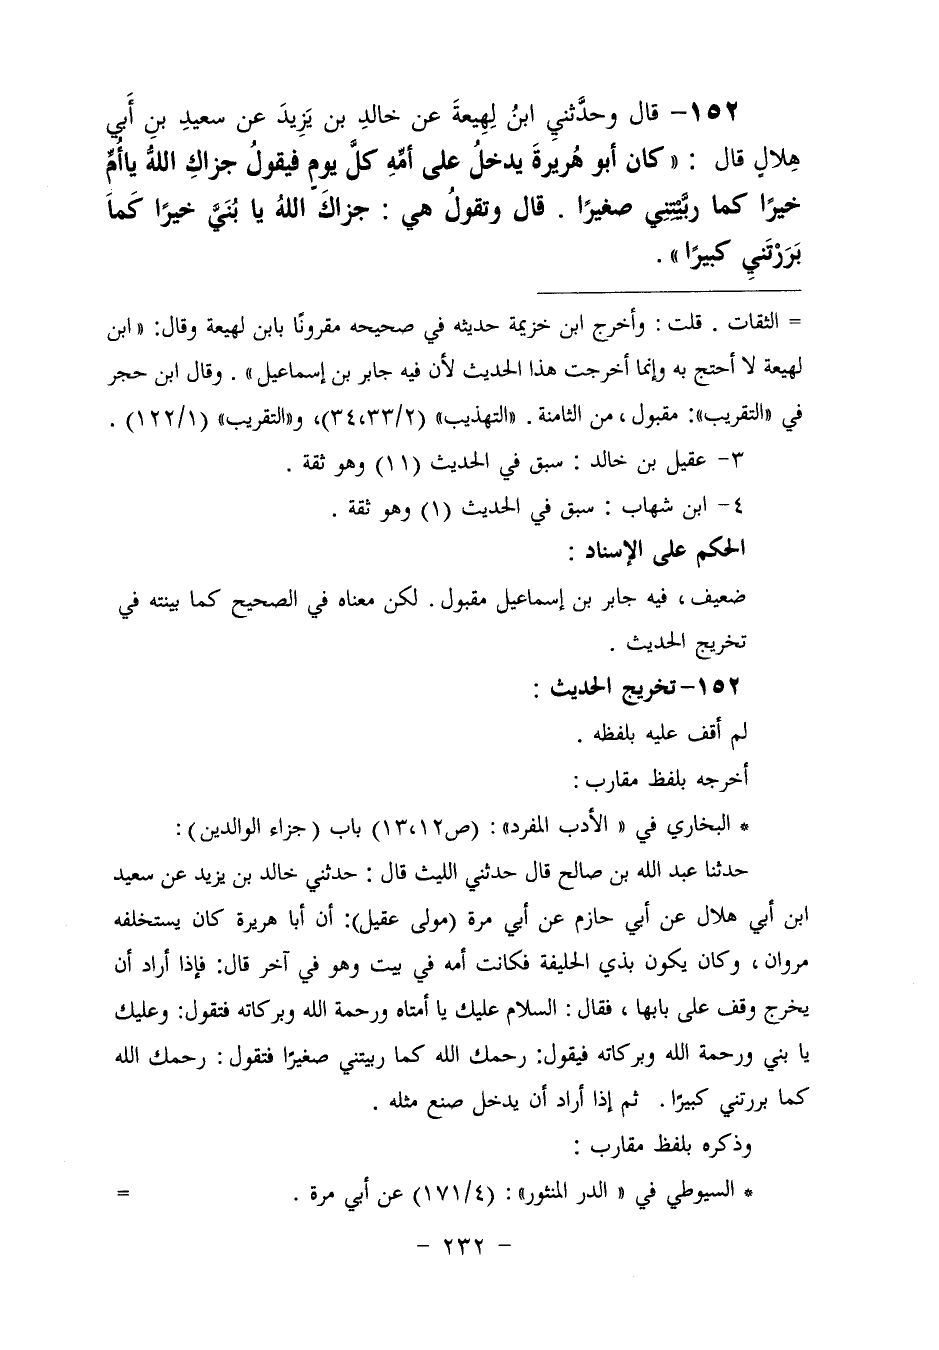 ١٥٢- قال وحدَّثني ابنُ لِهيعةَ عن خالدِ بن يَزِيدَ عن سعيدِ بنِ أَبي
هِلالٍ قال : « كان أبو هُريرةَ يدخلُ على أمِّهِ كلَّ يومٍ فيقولُ جزاكِ اللهُ ياأُمِّ
خيرًا كما ربَّيْتِنِي صغيرًا . قال وتقولُ هي : جزاكَ اللهُ يا بُنَيَّ خيرًا كَماَ
بَرَرْتَني كبيرًا » .
= الثقات . قلت : وأخرج ابن خزيمة حديثه في صحيحه مقرونًا بابن لهيعة وقال: « ابن
لهيعة لا أحتج به وإنما أخرجت هذا الحديث لأن فيه جابر بن إسماعيل » . وقال ابن حجر
في «التقريب»: مقبول ، من الثامنة . «التهذيب» (٣٤،٣٣/٢)، و«التقريب» (١٢٢/١) .
٣- عقيل بن خالد : سبق في الحديث (١١) وهو ثقة .
٤- ابن شهاب : سبق في الحديث (١) وهو ثقة .
الحكم على الإسناد :
ضعيف ، فيه جابر بن إسماعيل مقبول . لكن معناه في الصحيح كما بينته في
تخريج الحديث .
١٥٢- تخريج الحديث :
لم أقف عليه بلفظه .
أخرجه بلفظ مقارب :
* البخاري في « الأدب المفرد» : (ص١٣،١٢) باب ( جزاء الوالدين ) :
حدثنا عبد الله بن صالح قال حدثني الليث قال : حدثني خالد بن يزيد عن سعيد
ابن أبي هلال عن أبي حازم عن أبي مرة (مولى عقيل): أن أبا هريرة كان يستخلفه
مروان ، وكان يكون بذي الحليفة فكانت أمه في بيت وهو في آخر قال: فإذا أراد أن
يخرج وقف على بابها ، فقال : السلام عليك يا أمتاه ورحمة الله وبركاته فتقول: وعليك
يا بني ورحمة الله وبركاته فيقول: رحمك الله كما ربيتني صغيرًا فتقول : رحمك الله
كما بررتني كبيرًا . ثم إذا أراد أن يدخل صنع مثله .
وذكره بلفظ مقارب :
* السيوطي في « الدر المنثور» : (١٧١/٤) عن أبي مرة . =
- ٢٣٢ -